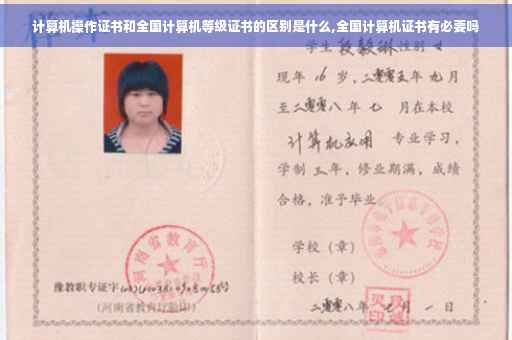 计算机操作证书和全国计算机等级证书的区别是什么,全国计算机证书有必要吗
学生 段毅琳 性别 女
现年 16 岁,二零零五年 九月
至二零零八年 七 月在本校
计算机应用 专业学习,
学制 三 年,修业期满,成绩
合格,准予毕业
学校(章)
校长(章)
二零零八年 月 一 日
河南省教育厅
豫教职专证字
(河南省教育厅验印)